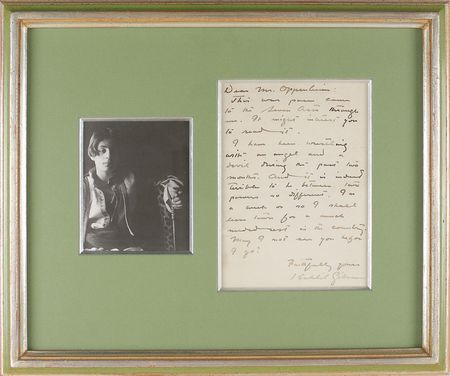 Dear Mr. Oppenheim:
This war poem came
to the Seven Arts through
me. It might interest you
to read it.
I have been wrestling
with an angel and a
devil during the past two
months. And it is indeed
terrible to be between two
powers so different. In
a week or so I shall
leave town for a much
needed rest in the country
May I not see you before
I go?
Faithfully yours
Kahlil Gibran